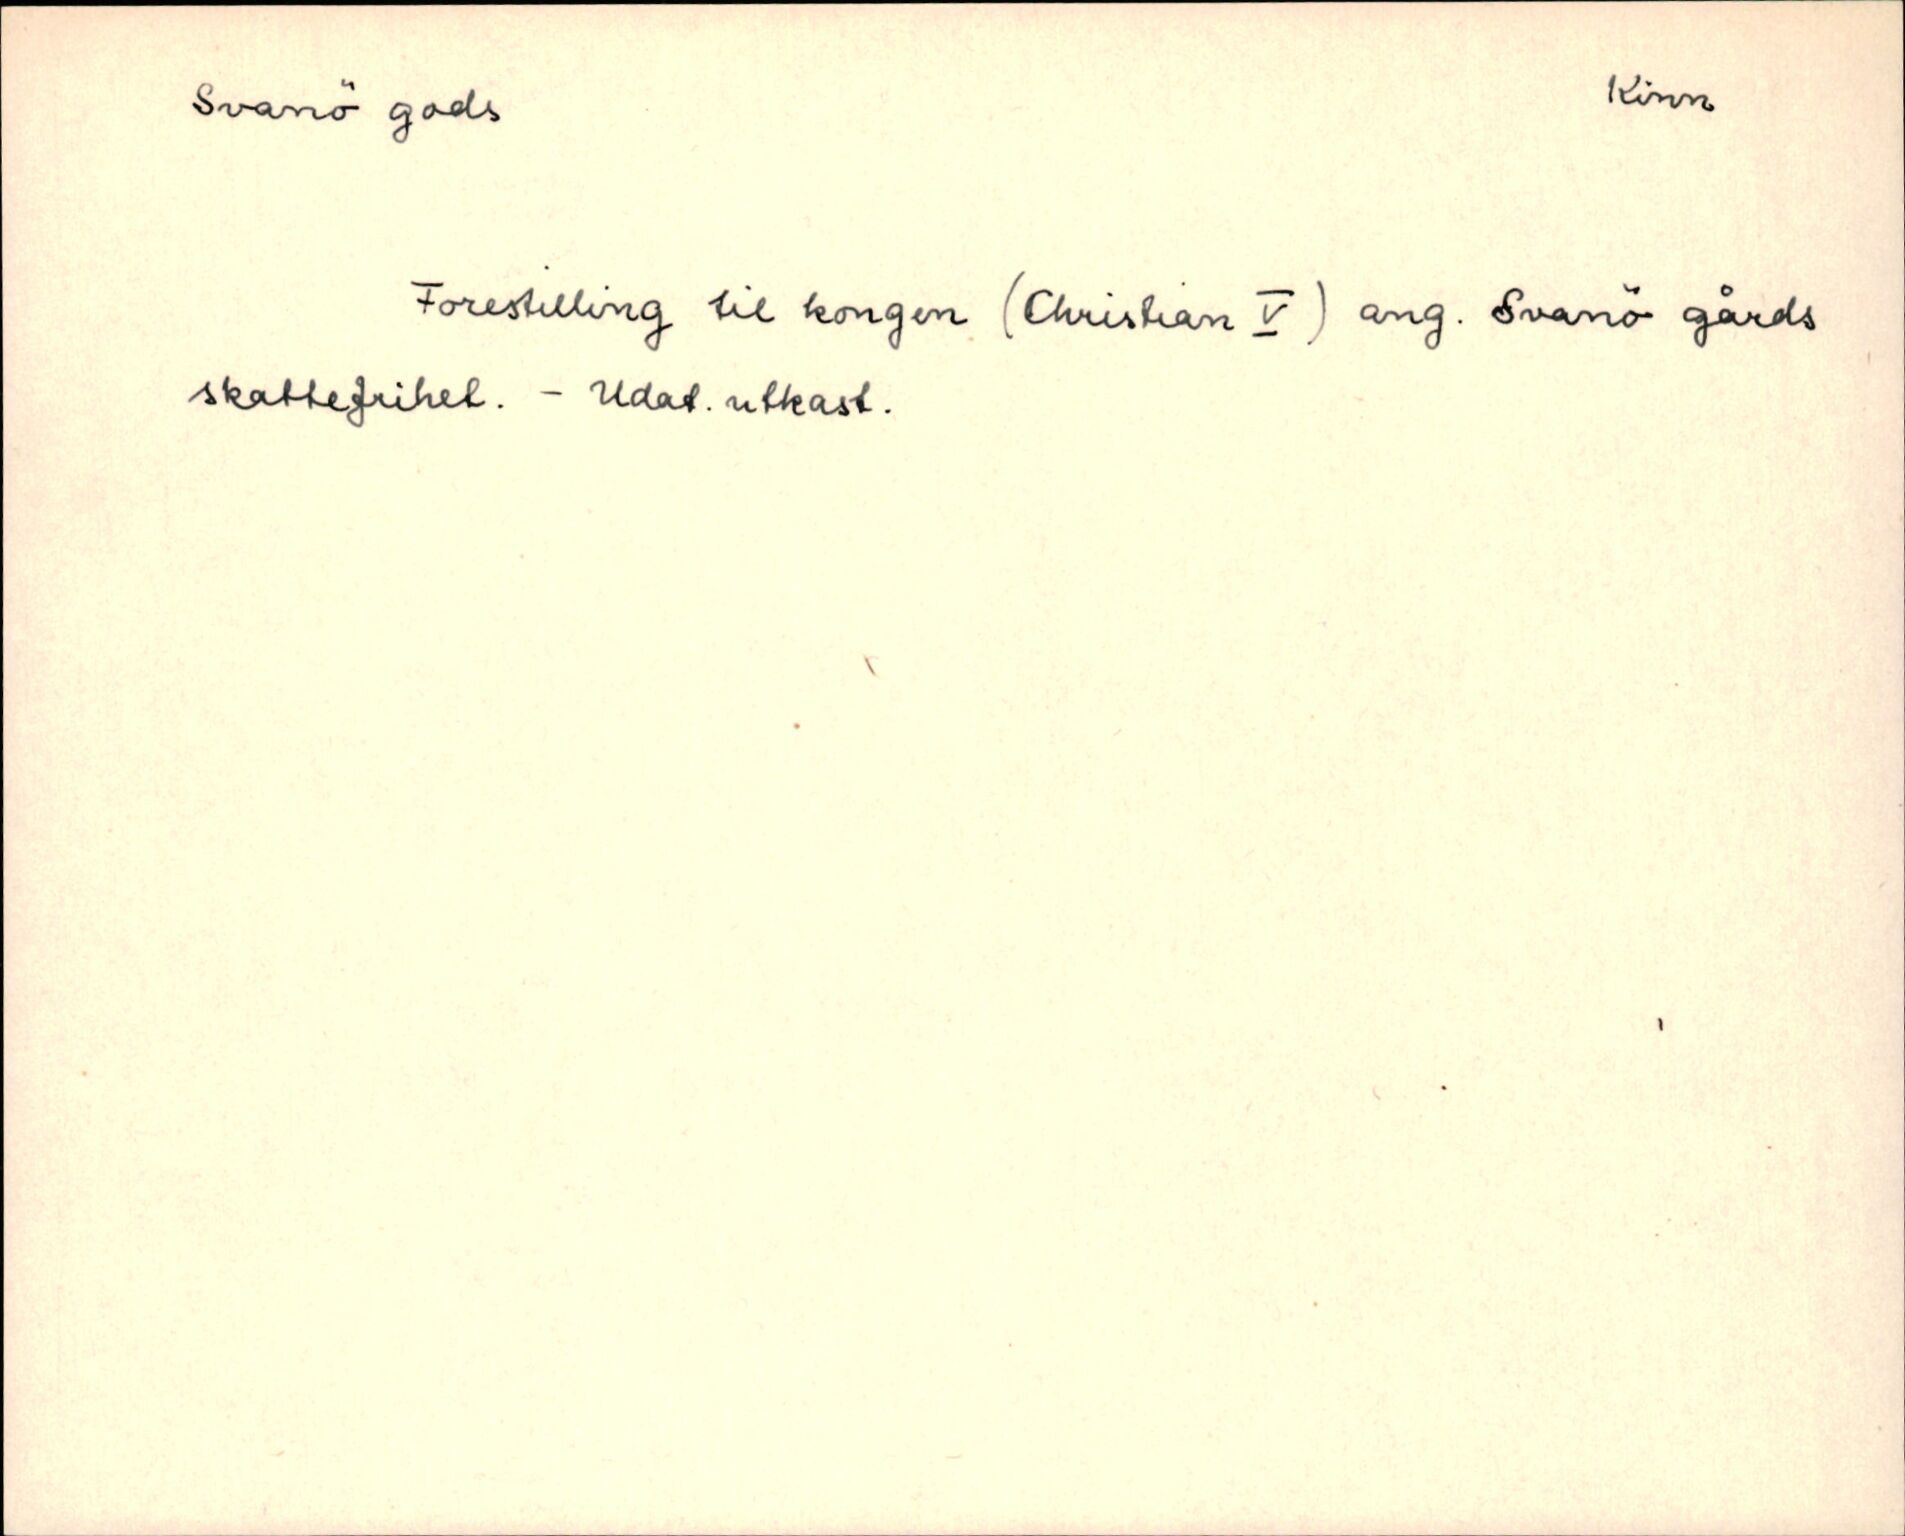 Svanö gods
Kinn
Forestilling til kongen (Christian V) ang. Svanö gårds
skattefrihet. - Udat. utkast.